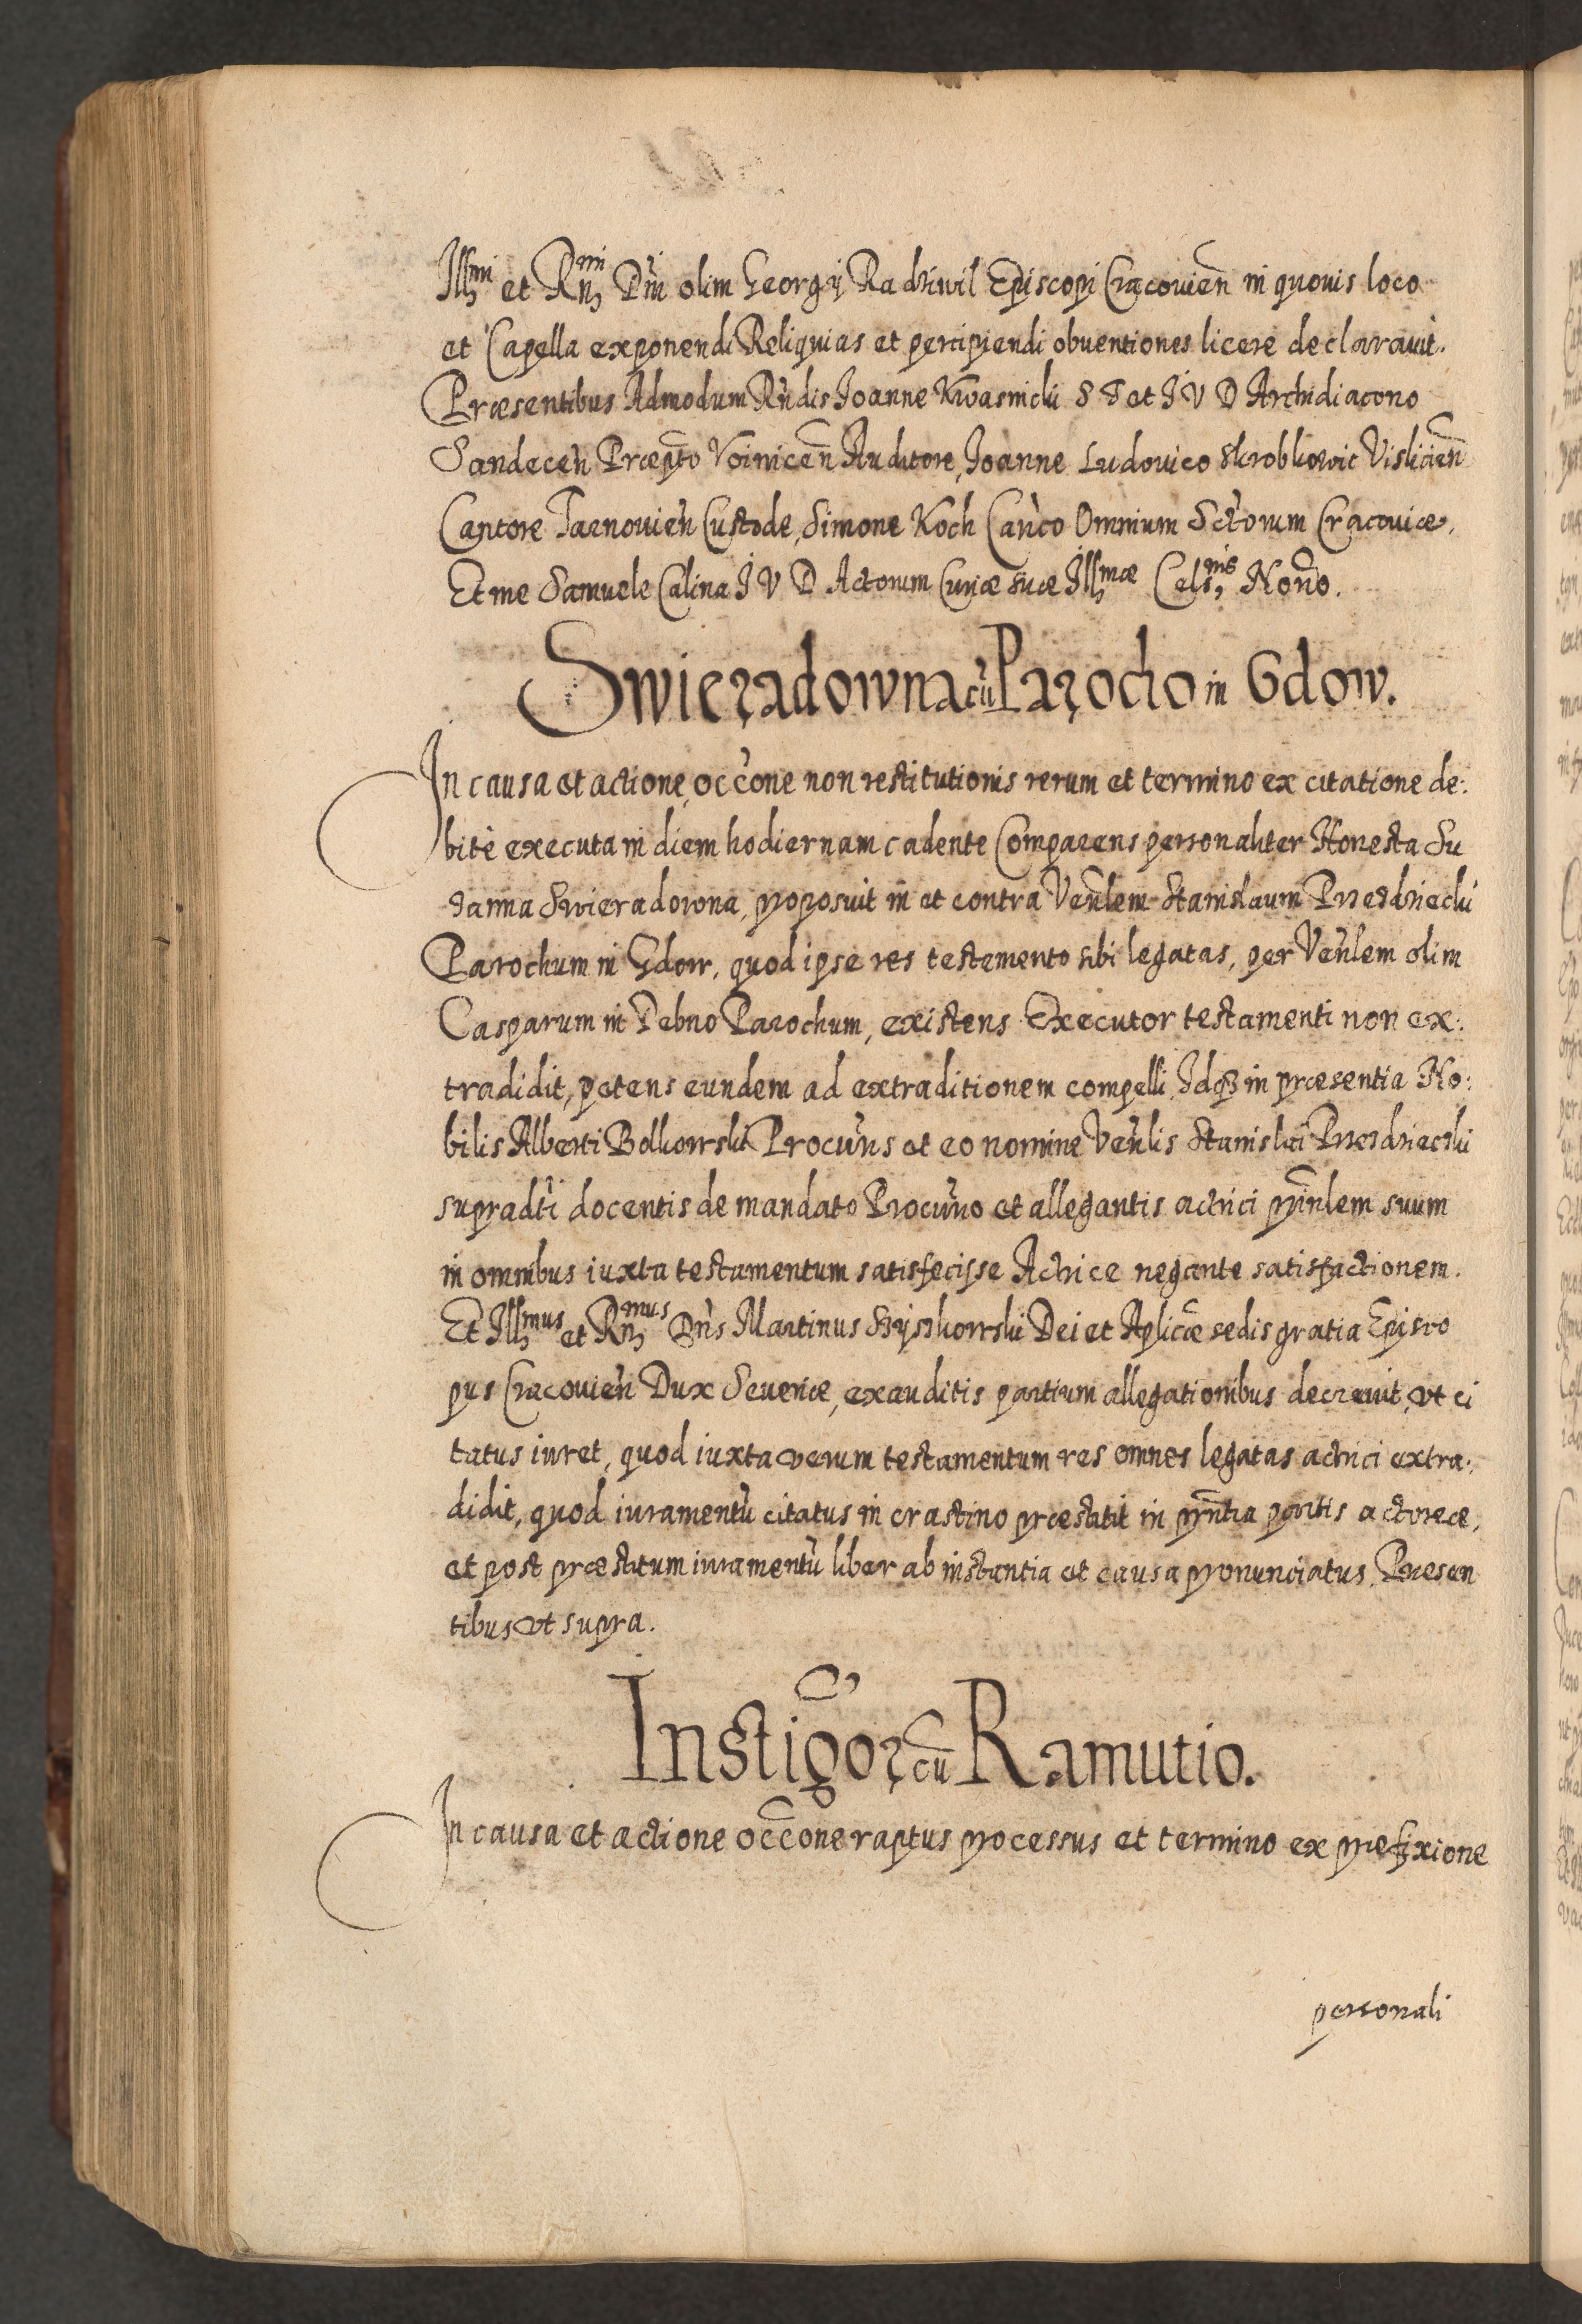 Illmi et Rmi Dni olim Georgij Radziwil Episcopi Cracovien in quovis loco
et Capella exponendi Reliquias et percipiendi obventiones licere declaravit.
Præsentibus Admodum Rndis Joanne Kwasnicki S T et J V D Archidiacono
Sandecen Præpto Voinicen Auditore, Joanne Ludovico Skrobkowic Vislicien
Cantore Tarnovien Custode, Simone Koch Canco Omnium Sctorum Cracoviæ,
Et me Samuele Calina J V D Actorum Curiæ suæ Illmæ Celsnis Nono.
Swieradowna cu Parocho in Gdow.
In causa et actione, occone non restitutionis rerum et termino ex citatione de:
bitè executa in diem hodiernam cadente Comparens personaliter Honesta Su
sanna Swieradowna, proposuit in et contra Venlem Stanislaum Przezdziecki
Parochum in Gdow, quod ipse res testamento sibi legatas, per Venlem olim
Casparum in Debno Parochum, existens Executor testamenti non ex:
tradidit, petens eundem ad extraditionem compelli, Idq3 in præsentia No:
bilis Alberti Bolkowski Procuris et eo nomine Venlis Stanislai Przezdziecki
supradti docentis de mandato Procurio et allegantis actrici prinlem suum
in omnibus iuxta testamentum satisfecisse Actrice negante satisfactionem.
Et Illmus et Rmus Dns Martinus Szyszkowski Dei et Aplicæ sedis gratia Episco
pus Cracovien Dux Severiæ, exauditis partium allegationibus decrevit, vt ci
tatus iuret, quod iuxta verum testamentum res omnes legatas actrici extra:
didit, quod iuramentu citatus in crastino præstitit in pntia partis actoreæ,
et post præstitum iuramentu liber ab instantia et causa pronunciatus, Præsen
tibus vt supra.
Instigor cu Ramutio.
In causa et actione occone raptus processus et termino ex præfixione
personali